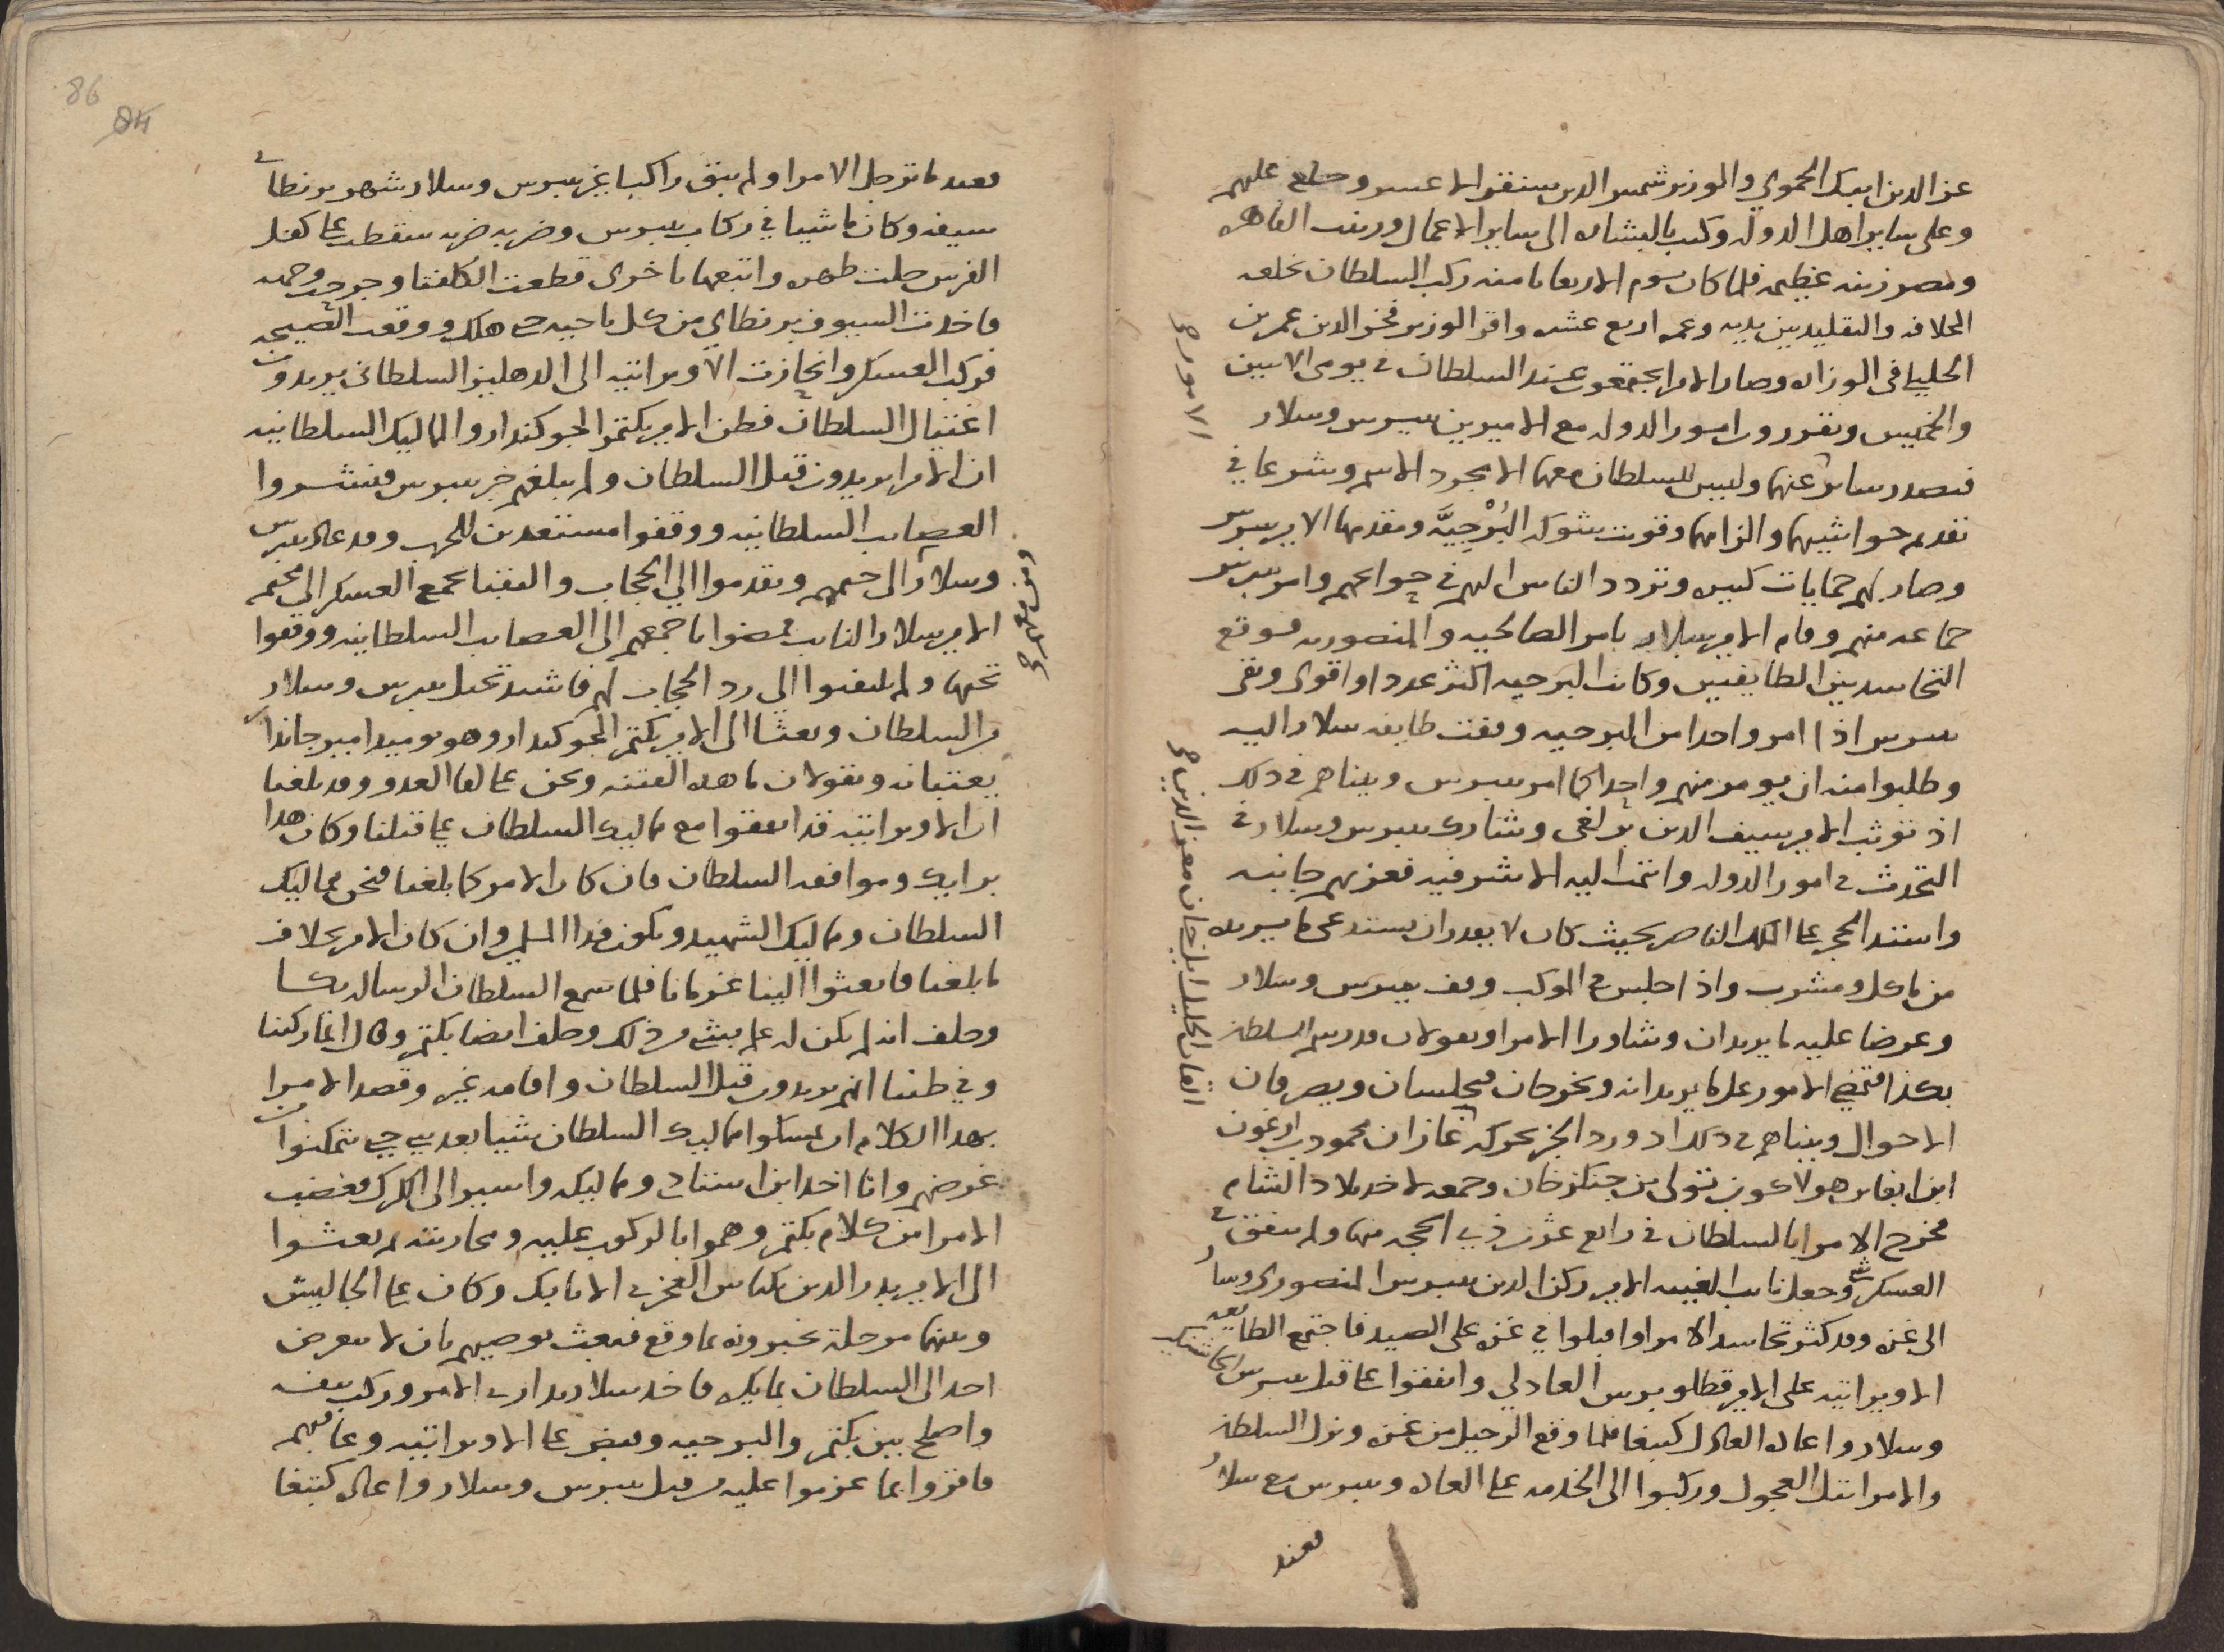 عز الدين ايبك الحموي والوزير شمس الدين سنقر الاعسر وخلع عليهم
وعلى ساير اهل الدوله وكتب بالبشاره الى ساير الاعمال وزينت القاهره
ومصر زينه عظيمه فلما كان يوم الاربعا ثامنه ركب السلطان بخلعه
الخلافه والتقليد بين يديه وعمره اربع عشره واقر الوزير فخر الدين عمر بن
الخليلي في الوزاره وصار الامرا يجتمعون عند السلطان في يومي الاثنين
والخميس ويقررون امور الدوله مع الاميرين بيبرس وسلار
فتصدر ساير عنهما وليس للسلطان معهما الا مجرد الاسم وشرعا في
تقدم حواشيهما والزامهما وقويت شوكه البُرْجِيَّه ومقدمها الامير بيبرس
وصار لهم حمايات كبيره وتردد الناس اليهم في حوايجهم وامر بيبرس
جماعه منهم وقام الامير سلار بامر الصالحيه والمنصوريه فوقع
التحاسد بين الطايفتين وكانت البرجيه اكثر عددا واقوى وبقى
بيبرس اذا امر واحدا من البرجيه وقفت طايفه سلار اليه
وطلبوا منه ان يومر منهم واحدا كما امر بيبرس وبيناهم في ذلك
اذ توثب الامير سيف الدين برلغى وشارك بيبرس وسلار في
التحدث في امور الدوله وانتمت اليه الاشرفيه فعز بهم جانبه
واشتد الحجر على الملك الناصر بحيث كان لا يقدر ان يستدعى ما يريده
من ماكل ومشرب واذا جلس في الموكب وقف بيبرس وسلار
وعرضا عليه ما يريدان وشاورا الامرا ويقولان قد رسم السلطان
بكذا فتمضي الامور على ما يريدانه ويخرجان فيجلسان ويصرفان
الاحوال وبيناهم في ذلك اذ ورد الخبر بحركه غازان محمود بن ارغون
ابن ابغا بن هولاكو بن تولى بن جنكز خان وجمعه لاخذ بلاد الشام
فخرج الامرا بالسلطان في رابع عشرى ذي الحجه منها ولم ينفق في
العسكر شي وجعل نايب الغيبه الامير ركن الدين بيبرس المنصوري وسار
الى غزه وقد كثر تحاسد الامرا واقبلوا في غزه على الصيد فاجتمع الطايفه
الاويراتيه على الامير قطلوبرس العادلي واتفقوا على قتل بيبرس الجاشنكير
وسلار واعاده العادل كتبغا فلما وقع الرحيل من غزه ونزل السلطان
والامرا بتل العجول وركبوا الى الخدمه على العاده وبيبرس مع سلار
فعند
الامور
القان الجليل ايلخان معز الدين
فعند ما ترجل الامرا ولم يبق راكبا غير بيبرس وسلار شهر برنطاى
سيفه وكان ماشيا في ركاب بيبرس وضربه ضربه سقطت على كفل
الفرس حلت ظهره واتبعها باخرى قطعت الكلفتا وجرحت وجهه
فاخذت السيوف برنطاي من كل ناحيه حتى هلك ووقعت الصيحه
فركب العسكر وانحازت الاويراتيه الى الدهليز السلطاني يريدون
اغتيال السلطان فظن الامير بكتمر الجوكندار والمماليك السلطانيه
ان الامرا يريدون قتل السلطان ولم يبلغهم خبر بيبرس فنشروا
العصايب السلطانيه ووقفوا مستعدين للحرب وقد عاد بيبرس
وسلار الى خيمهم وتقدموا الى الحجاب والنقبا بجمع العسكر الى مخيم
الامير سلار النايب فمضوا باجمعهم الى العصايب السلطانيه ووقفوا
تحتها ولم يلتفتوا الى رد الحجاب لهم فاشتد تخيل بيبرس وسلار
من السلطان وبعثا الى الامير بكتمر الجوكندار وهو يوميد امير جاندار
يعتبانه ويقولان ما هذه الفتنه ونحن على لقا العدو وقد بلغنا
ان الاويراتيه قد اتفقوا مع مماليك السلطان على قتلنا وكان هذا
برايك وموافقه السلطان فان كان الامر كما بلغنا فنحن مماليك
السلطان ومماليك الشهيد ونكون فدا المسلمين وان كان الامر بخلاف
ما بلغنا فابعثوا الينا غرمانا فلما سمع السلطان الرساله بكا
وحلف انه لم يكن له علم بشى من ذلك وحلف ايضا بكتمر وقال انما ركبنا
وفي ظننا انهم يريدون قتل السلطان واقامه غيره وقصد الامرا
بهذا الكلام ان يمسكوا مماليك السلطان شيا بعد شى حتى يتمكنوا من
غرضهم وانا اخذ ابن استاذي ومماليكه واسير الى الكرك فغضب
الامرا من كلام بكتمر وهموا بالركوب عليه ومحاربته ثم بعثوا
الى الامير بدر الدين بكتاش الفخري الاتابك وكان على الجاليش
وبينهما مرحله يخبرونه بما وقع فبعث يوصيهم بان لا يتعرض
احد الى السلطان بما يكره فاخذ سلار يدارى الامر وركب بنفسه
واصلح بين بكتمر والبرجيه وقبض على الاويراتيه وعاقبهم
فاقروا بما عزموا عليه من قتل بيبرس وسلار واعاده كتبغا
86
84